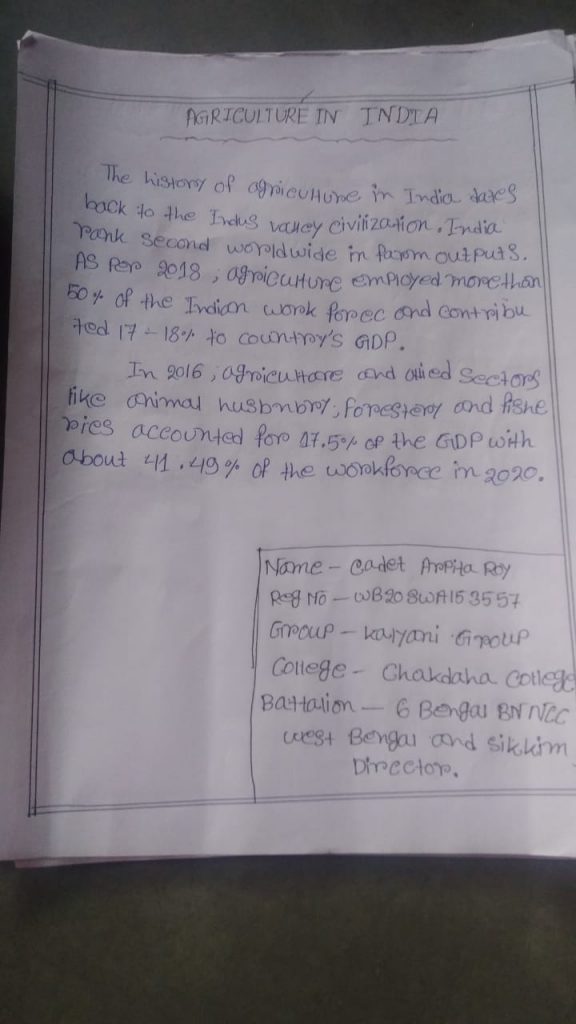 AGRICULTURE IN INDIA
The history of agriculture in India dates
back to the Indus valley civilization. India
rank second worldwide in farm outputs.
AS Per 2018, agriculture employed more than
50% of the Indian work forec and contribu
ted 17-18% to country's GDP.
In 2016, agricultare and allied sectors
like animal husbnbry, forestery and fishe
ries accounted for 17.5% of the GDP with
about 41.49% of the workforce in 2020.
Name - Cadet Arpita Roy
Reg No - WB20SWA153557
Group - Kalyani Group
College - Chakdaha College
Battalion - 6 Bengal BN NCC
West Bengal and Sikkim
Director.